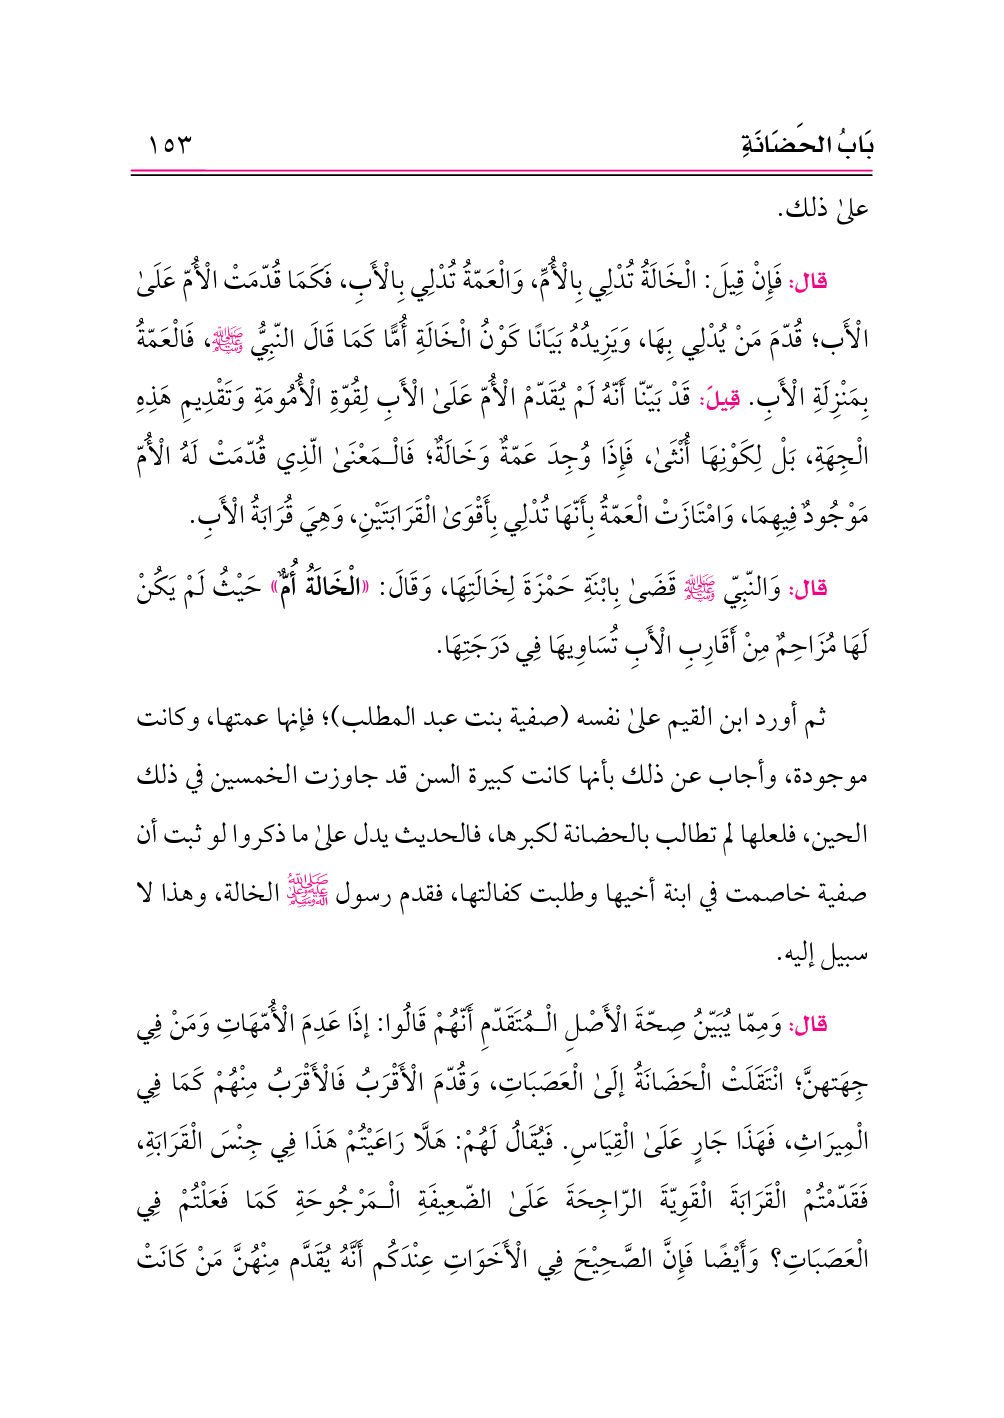 بَابُ الحَضَانَةِ ١٥٣
علىٰ ذلك.
قال: فَإِنْ قِيلَ: الْخَالَةُ تُدْلِي بِالْأُمِّ، وَالْعَمّةُ تُدْلِي بِالْأَبِ، فَكَمَا قُدّمَتْ الْأُمّ عَلَىٰ
الْأَبِ؛ قُدّمَ مَنْ يُدْلِي بِهَا، وَيَزِيدُهُ بَيَانًا كَوْنُ الْخَالَةِ أُمًّا كَمَا قَالَ النّبِيُّ ﷺ، فَالْعَمّةُ
بِمَنْزِلَةِ الْأَبِ. قِيلَ: قَدْ بَيّنّا أَنّهُ لَمْ يُقَدّمْ الْأُمّ عَلَىٰ الْأَبِ لِقُوّةِ الْأُمُومَةِ وَتَقْدِيمِ هَذِهِ
الْجِهَةِ، بَلْ لِكَوْنِهَا أُنْثَىٰ، فَإِذَا وُجِدَ عَمّةٌ وَخَالَةٌ؛ فَالْـمَعْنَىٰ الّذِي قُدّمَتْ لَهُ الْأُمّ
مَوْجُودٌ فِيهِمَا، وَامْتَازَتْ الْعَمّةُ بِأَنّهَا تُدْلِي بِأَقْوَىٰ الْقَرَابَتَيْنِ، وَهِيَ قُرَابَةُ الْأَبِ.
قال: وَالنّبِيّ ﷺ قَضَىٰ بِابْنَةِ حَمْزَةَ لِخَالَتِهَا، وَقَالَ: «الْخَالَةُ أُمٌّ» حَيْثُ لَمْ يَكُنْ
لَهَا مُزَاحِمٌ مِنْ أَقَارِبِ الْأَبِ تُسَاوِيهَا فِي دَرَجَتِهَا.
ثم أورد ابن القيم علىٰ نفسه (صفية بنت عبد المطلب)؛ فإنها عمتها، وكانت
موجودة، وأجاب عن ذلك بأنها كانت كبيرة السن قد جاوزت الخمسين في ذلك
الحين، فلعلها لم تطالب بالحضانة لكبرها، فالحديث يدل علىٰ ما ذكروا لو ثبت أن
صفية خاصمت في ابنة أخيها وطلبت كفالتها، فقدم رسول ﷺ الخالة، وهذا لا
سبيل إليه.
قال: وَمِمّا يُبَيّنُ صِحّةَ الْأَصْلِ الْـمُتَقَدّمِ أَنّهُمْ قَالُوا: إذَا عَدِمَ الْأُمّهَاتِ وَمَنْ فِي
جِهَتهنَّ؛ انْتَقَلَتْ الْحَضَانَةُ إلَىٰ الْعَصَبَاتِ، وَقُدّمَ الْأَقْرَبُ فَالْأَقْرَبُ مِنْهُمْ كَمَا فِي
الْمِيرَاثِ، فَهَذَا جَارٍ عَلَىٰ الْقِيَاسِ. فَيُقَالُ لَهُمْ: هَلَّا رَاعَيْتُمْ هَذَا فِي جِنْسَ الْقَرَابَةِ،
فَقَدّمْتُمْ الْقَرَابَةَ الْقَوِيّةَ الرّاجِحَةَ عَلَىٰ الضّعِيفَةِ الْـمَرْجُوحَةِ كَمَا فَعَلْتُمْ فِي
الْعَصَبَاتِ؟ وَأَيْضًا فَإِنَّ الصَّحِيْحَ فِي الْأَخَوَاتِ عِنْدَكُم أَنَّهُ يُقَدَّم مِنْهُنَّ مَنْ كَانَتْ